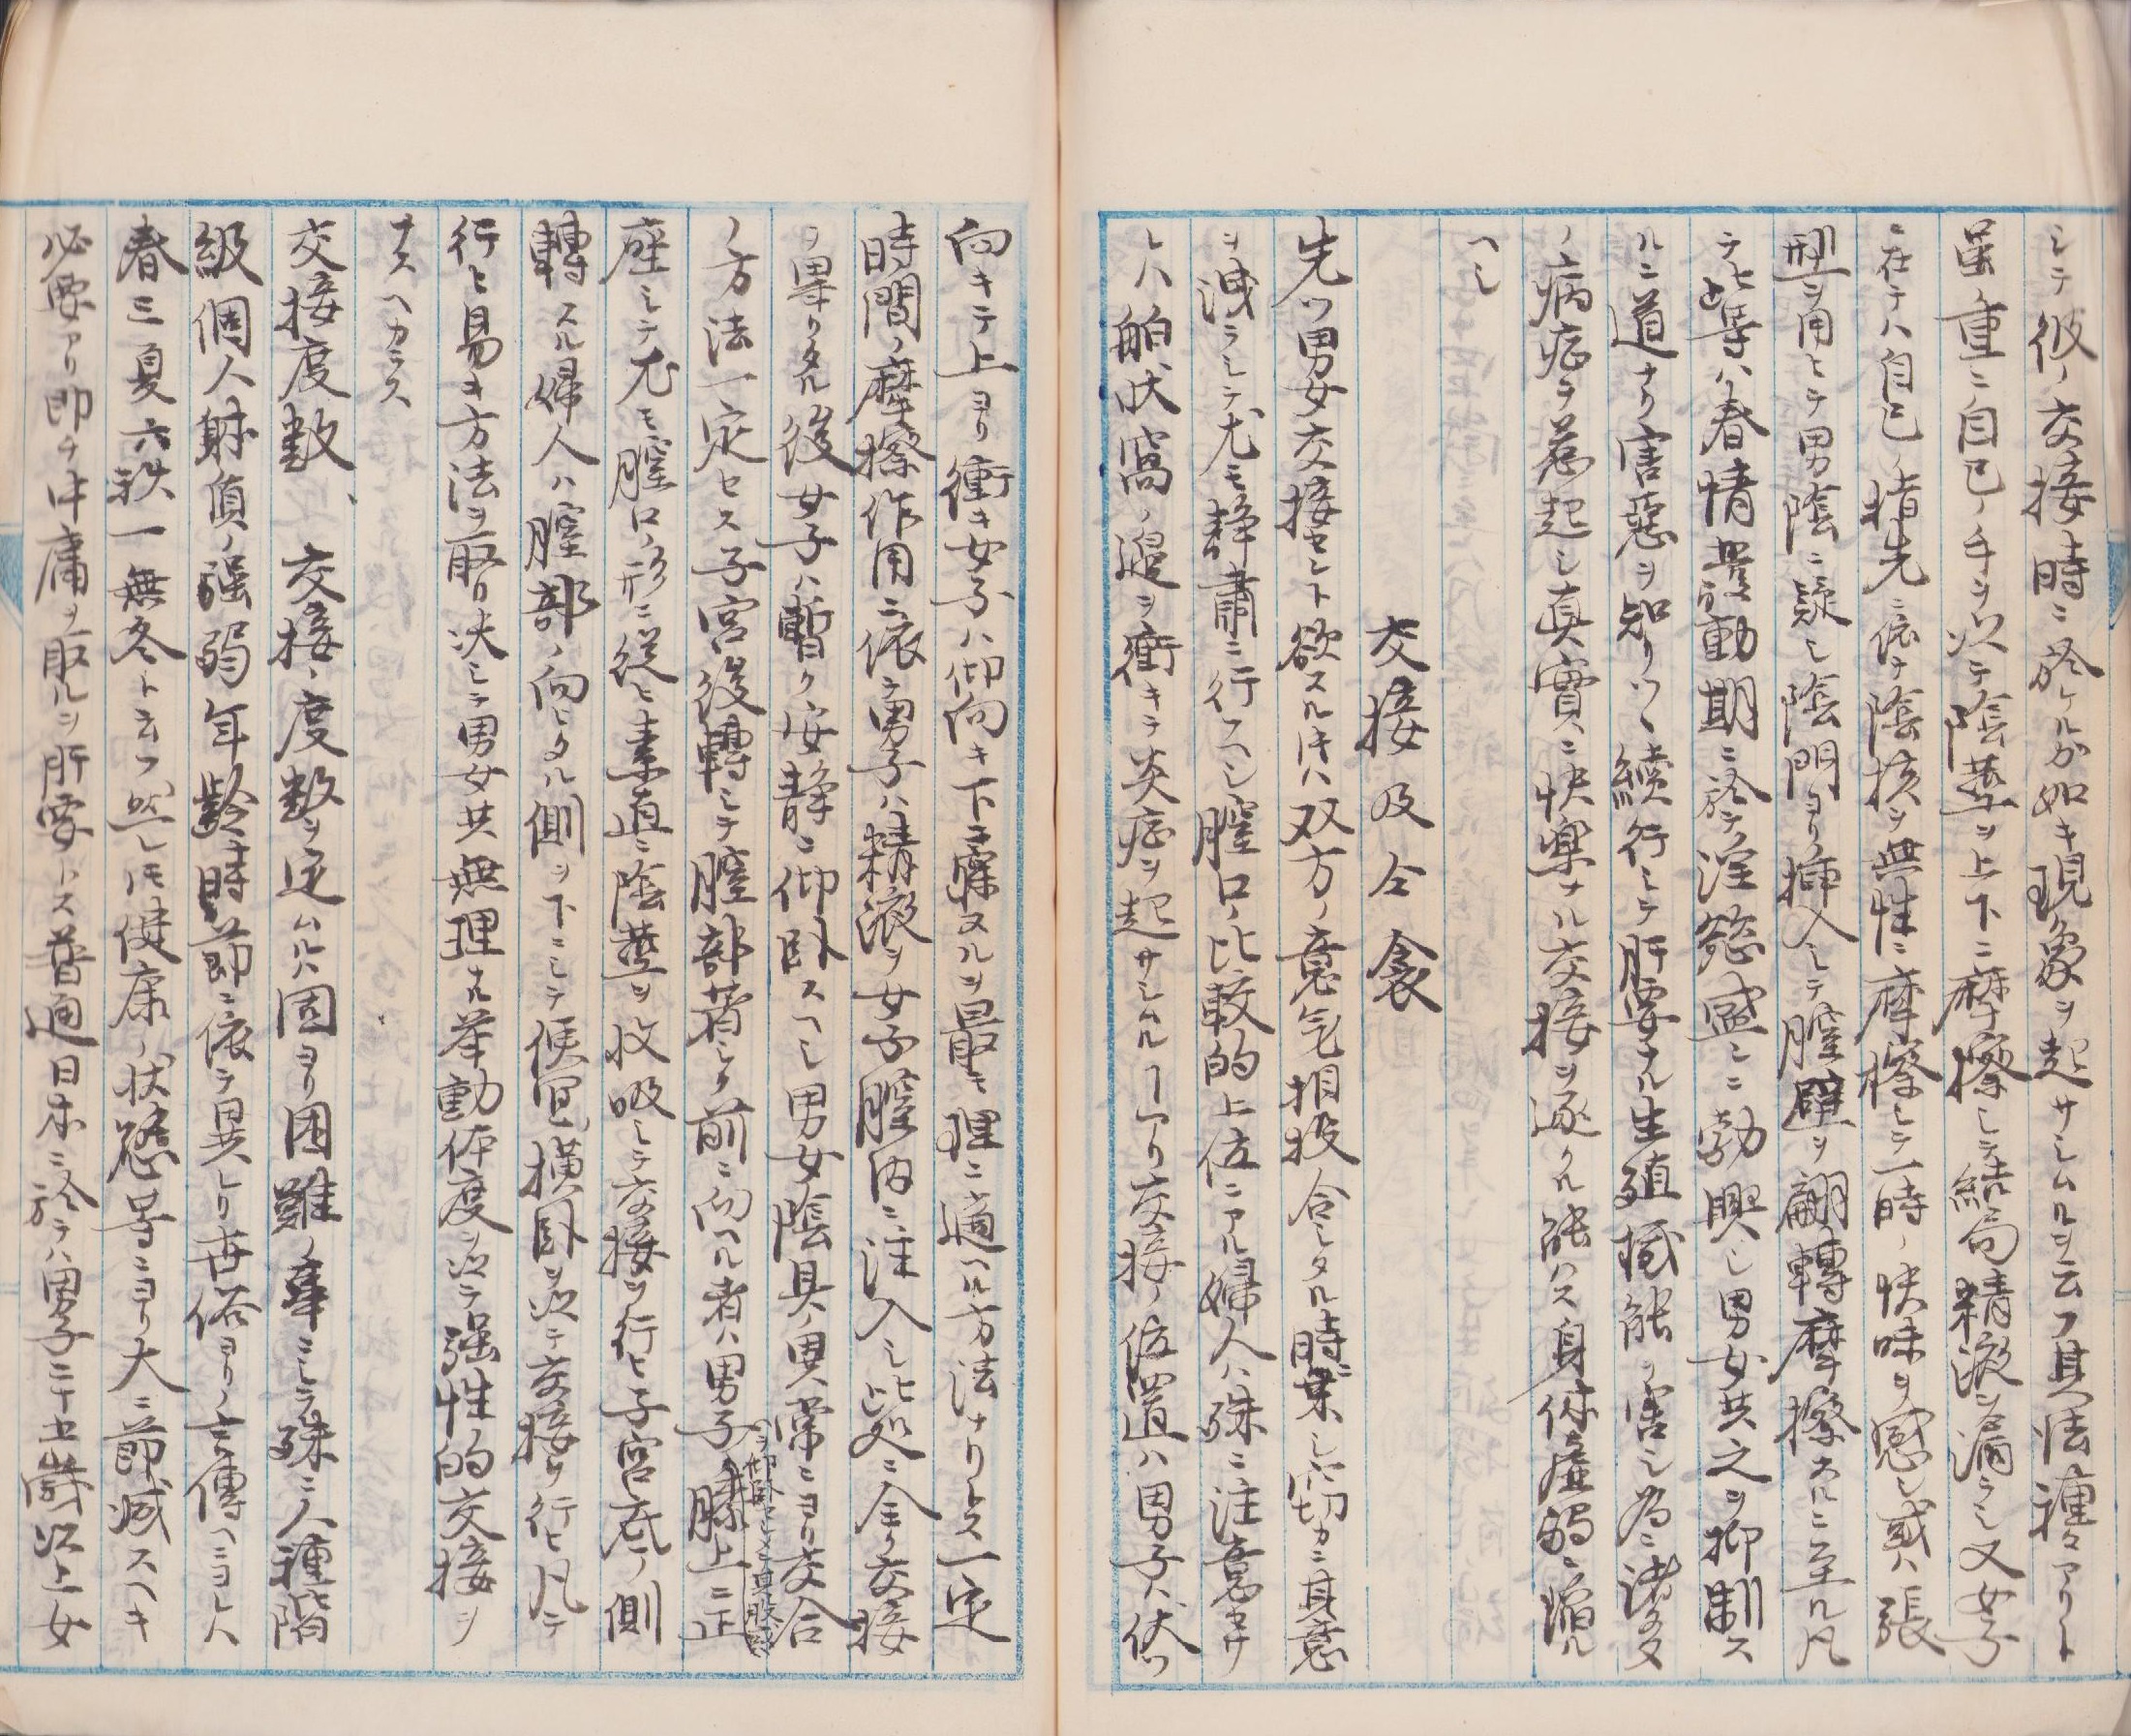 シテ彼ノ交接時ニ於ケルガ如キ現象ヲ起サシムルヲ云フ其法種々アリト
虽ノ重ニ自己ノ手ヲ以テ陰莖ヲ上下ニ摩擦シテ結局精液ヲ漏ラシ又女子
ニ在テハ自己ノ指先ニ依テ陰核ヲ無性ニ摩擦シテ一時ノ快味ヲ感シ或ハ張
型ヲ用ヒテ男陰ニ疑シ陰門ヨリ挿入シテ膣壁ヲ翻轉摩擦スルニ至ル凡
テ此等ハ春情發動期ニ於テ淫慾盛ンニ勃興シ男女共之ヲ抑制ス
ルニ道ナク害惡ヲ知リツヽ續行シテ肝要ナル生殖機能ヲ害シ為ニ諸多
ノ病症ヲ惹起シ真實ニ快樂ナル交接ヲ遂クル能ハス身体虚弱ニ陥ル
ヘシ
交接及合衾
先ツ男女交接セント欲スル𪜈ハ双方ノ意気相投合シタル時ニ業シ窃カニ其意
ヲ洩ラシテ尤モ静肅ニ行フヘシ膣口ノ比較的上位ニアル婦人ハ殊ニ注意セサ
レハ舶状窩ノ邉ヲ衝キテ炎症ヲ起サシムルヿアリ交接ノ位置ハ男子ハ伏ツ
向キテ上ヨリ衝キ女子ハ仰向キ下ニ臥スルヲ最モ理ニ適ヘル方法ナリトス一定
時間ノ摩擦作用ニ依テ男子ハ精液ヲ女子膣内ニ注入シ此処ニ全ク交接
ヲ畢リタル後女子ハ暫ク安静ニ仰臥スヘシ男女陰具ノ異常ニヨリ交合
ノ方法一定セス子宮後轉シテ膣部著シク前ニ向ヘル者ハ男子ノ膝上ニ正
座シテ尤モ膣口ノ形ニ従ヒ素直ニ陰莖ヲ收吸シテ交接ヲ行ヒ子宮底ノ側
轉スル婦人ハ膣部ノ向ヒタル側ヲ下ニシテ便冝横臥ヲ以テ交接ヲ行ヒ凡テ
行ヒ易キ方法ヲ取リ决シテ男女共無理ナル挙動体度ヲ以テ强性的交接ヲ
ナスヘカラス
交接度数、　交接ノ度数ヲ定ムルハ固ヨリ困難ノ事ニシテ殊ニ人種階
級個人財貭ノ强弱年齢時節ニ依テ異レリ世俗ヨリノ言傳ヘニヨレハ
春三夏六秋一無冬ト云フ然レ𪜈健康ノ状態等ニヨリ大ニ節减スヘキ
必要アリ即チ中庸ヲ取ルヲ肝要トス普通日本ニ於テハ男子二十五歳以上女